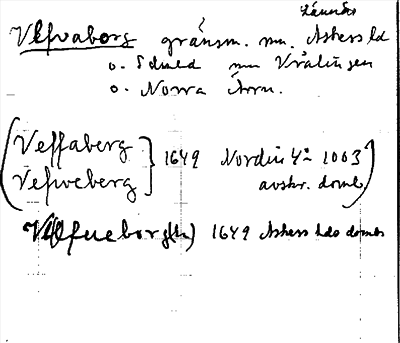 Vefvaborg gränsm. mn. Askers hd
o. Sduld mn Vrålingen
o. Norra Ärm.
(Veffaberg
Vefweberg] 1649 Nordin 4° 1003
avskr. domb)
Velfueborg(h) 1649 Askers hds domb